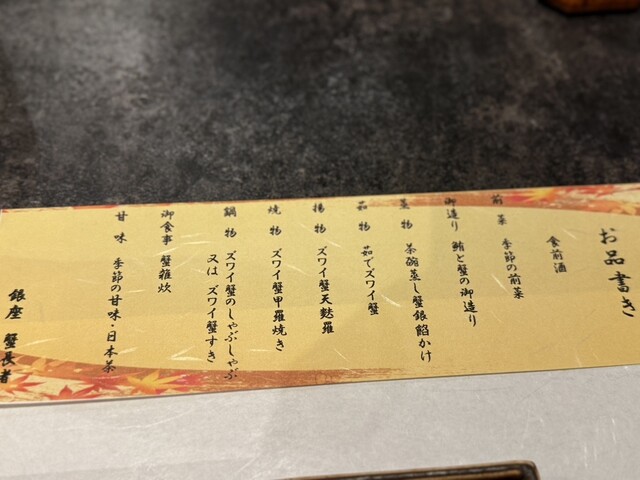 お品書き
食前酒
前菜 季節の前菜
御造り 鮪と蟹の御造り
蒸物 茶碗蒸し蟹銀餡かけ
茹物 茹でズワイ蟹
揚物 ズワイ蟹天麩羅
焼物 ズワイ蟹甲羅焼き
鍋物 ズワイ蟹のしゃぶしゃぶ
又は ズワイ蟹すき
御食事 蟹雑炊
甘味 季節の甘味・日本茶
銀座 蟹長者